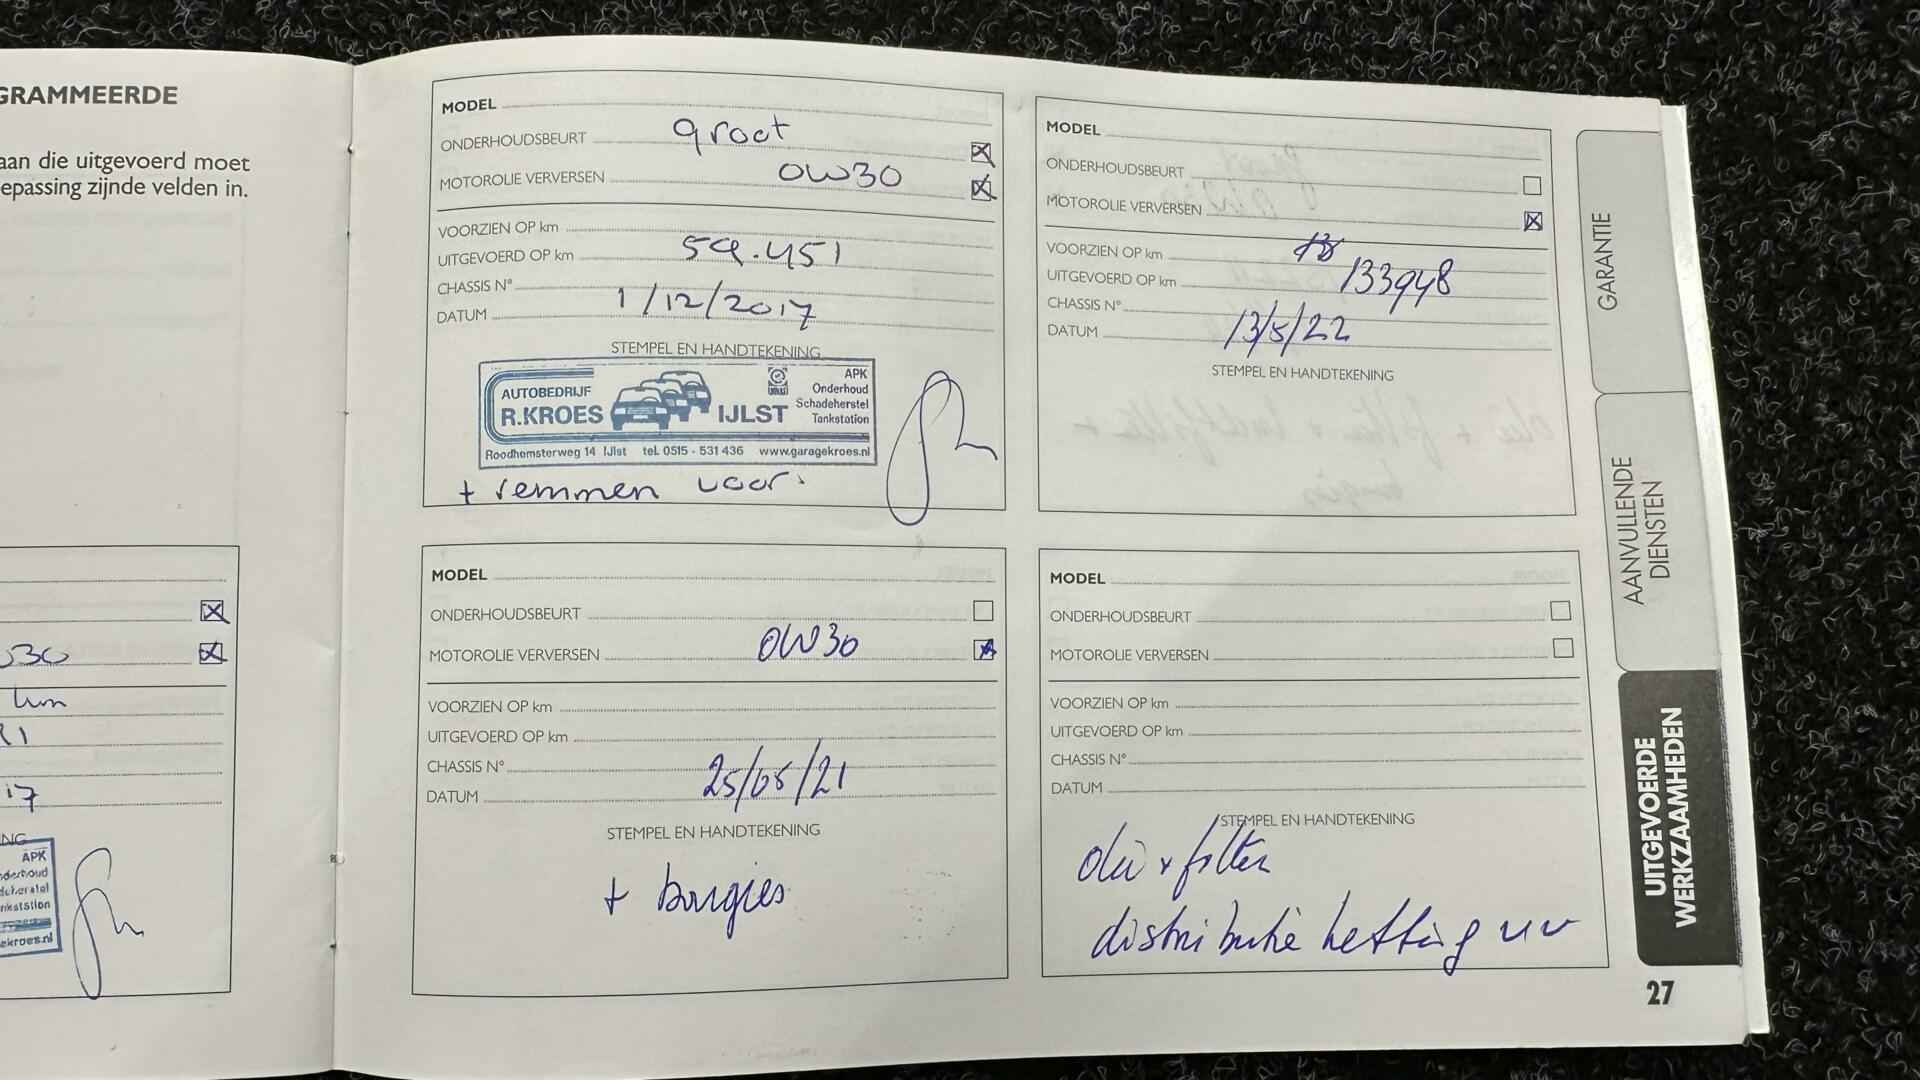 GRAMMEERDE
aan die uitgevoerd moet
epassing zijnde velden in.
km
17
NG
APK
nderhoud
nkstation
ekroes.nl
MODEL
ONDERHOUDSBEURT groot
MOTOROLIE VERVERSEN OW30
VOORZIEN OP km
UITGEVOERD OP km 59.451
CHASSIS N°
DATUM 1/12/2017
STEMPEL EN HANDTEKENING
AUTOBEDRIJF
R.KROES IJLST
APK
Onderhoud
Schadeherstel
Tankstation
Roodhemsterweg 14 IJlst tel. 0515 - 531 436 www.garagekroes.nl
+ remmen voor.
MODEL
ONDERHOUDSBEURT
MOTOROLIE VERVERSEN
VOORZIEN OP km
UITGEVOERD OP km 133948
CHASSIS N°
DATUM 13/5/22
STEMPEL EN HANDTEKENING
MODEL
ONDERHOUDSBEURT
MOTOROLIE VERVERSEN OW30
VOORZIEN OP km
UITGEVOERD OP km
CHASSIS N°
DATUM 25/05/21
STEMPEL EN HANDTEKENING
+ bougies
MODEL
ONDERHOUDSBEURT
MOTOROLIE VERVERSEN
VOORZIEN OP km
UITGEVOERD OP km
CHASSIS N°
DATUM
STEMPEL EN HANDTEKENING
olie + filter
distributie ketting
GARANTIE
AANVULLENDE
DIENSTEN
UITGEVOERDE
WERKZAAMHEDEN
27